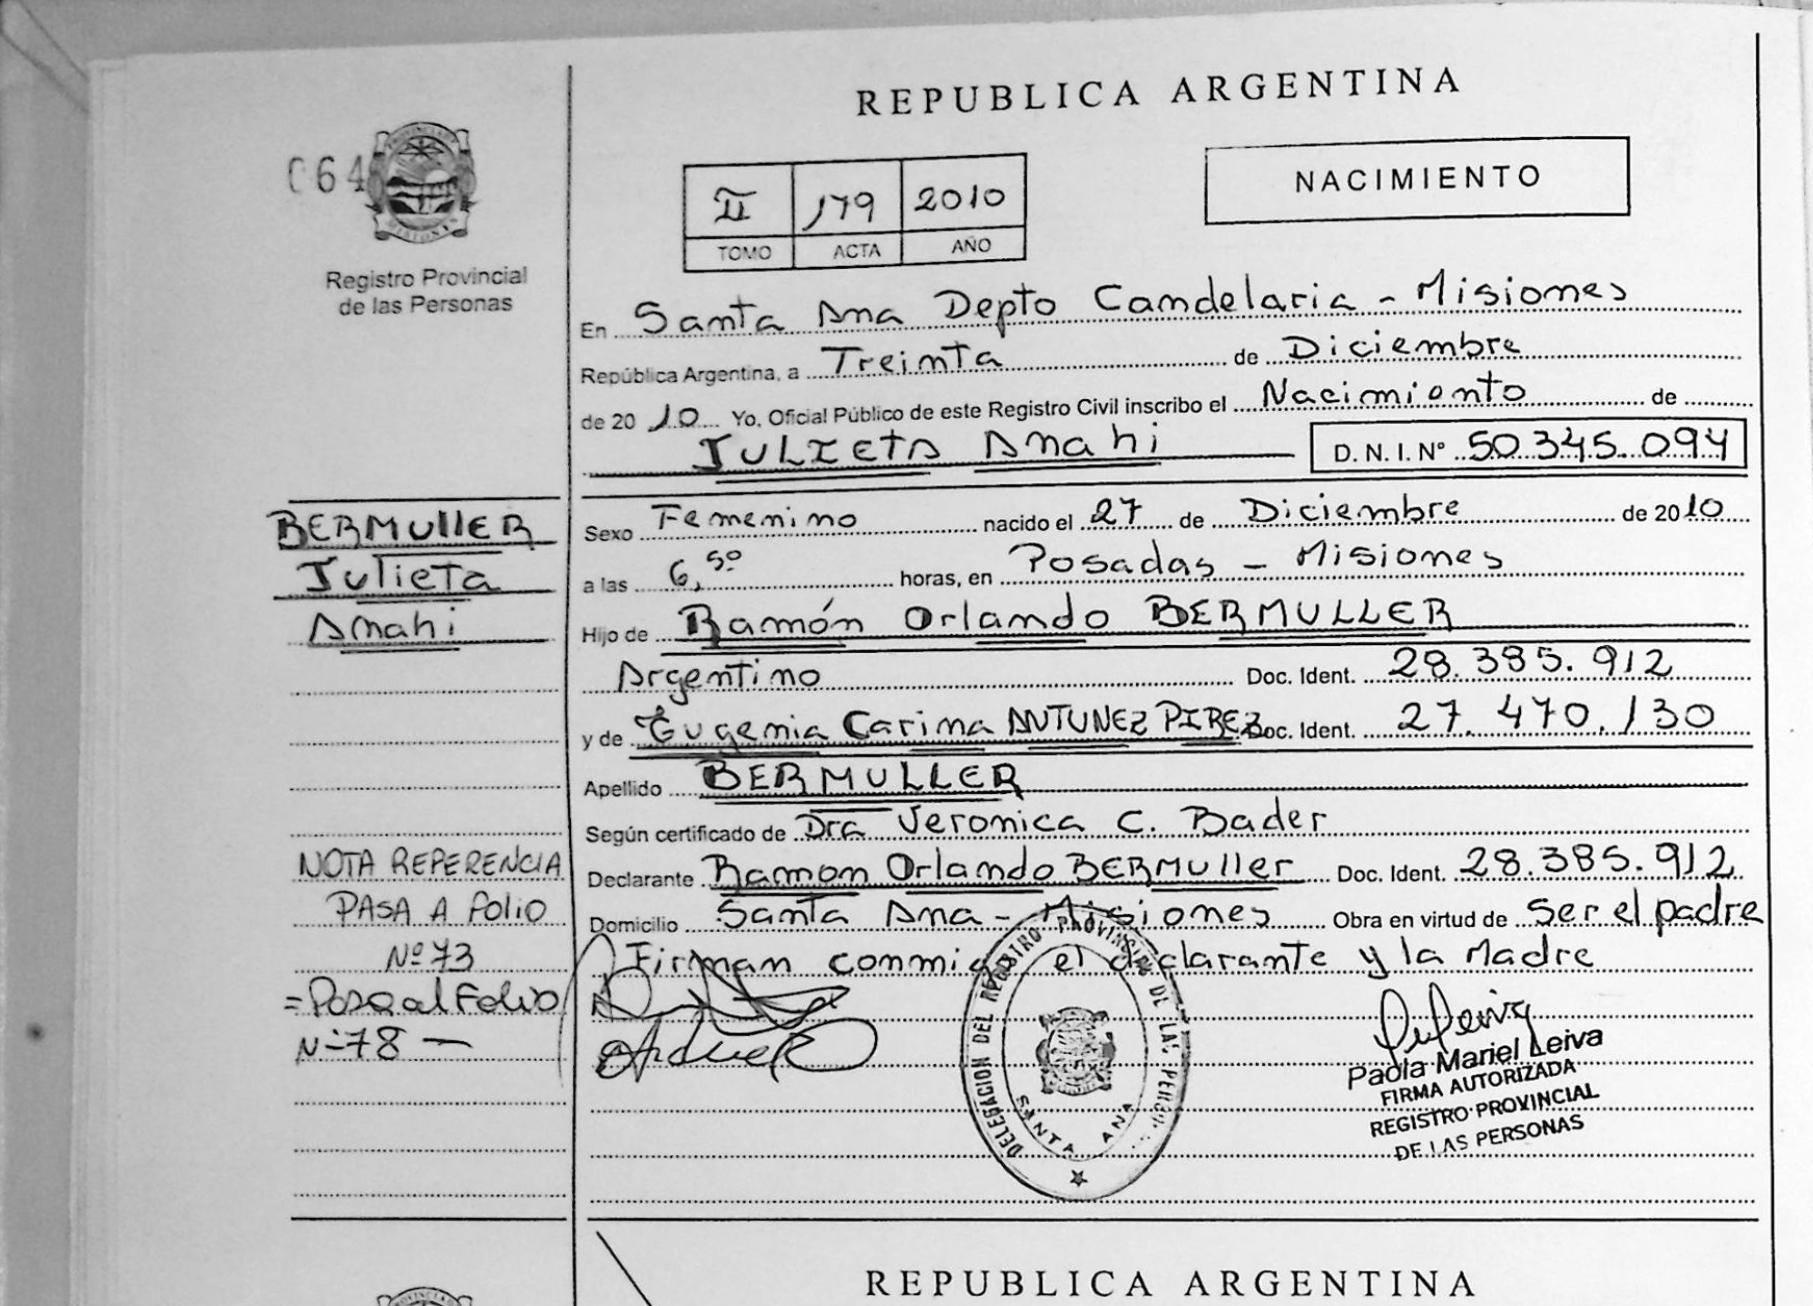 REPUBLICA ARGENTINA
064
NACIMIENTO
II 179 2010
TOMO ACTA AÑO
Registro Provincial
de las Personas
En Santa Ana Depto Candelaria - Misiones
República Argentina, a Treinta de Diciembre
de 2010 Yo, Oficial Público de este Registro Civil inscribo el Nacimiento de
JULIETA Anahi D. N. I. Nº 50.345.094
BERMULLER
Julieta
Anahi
Sexo Femenino nacido el 27 de Diciembre de 2010
a las 6,50 horas, en Posadas - Misiones
Hijo de Ramón Orlando BERMULLER
Argentino Doc. Ident. 28.385.912
y de Eugenia Carina ANTUNEZ PIREZ Doc. Ident. 27.470.130
Apellido BERMULLER
Según certificado de Dra Veronica C. Bader
Declarante Ramon Orlando BERMULLER Doc. Ident. 28.385.912
Domicilio Santa Ana - Misiones Obra en virtud de Ser el padre
Firman conmigo el declarante y la Madre
NOTA REFERENCIA
PASA A FOLIO
Nº 73
= Pasa al Folio
Nº 78 —
DELEGACION DEL REGISTRO PROVINCIAL DE LAS
SANTA ANA
Paola Mariel Leiva
FIRMA AUTORIZADA
REGISTRO PROVINCIAL
DE LAS PERSONAS
REPUBLICA ARGENTINA